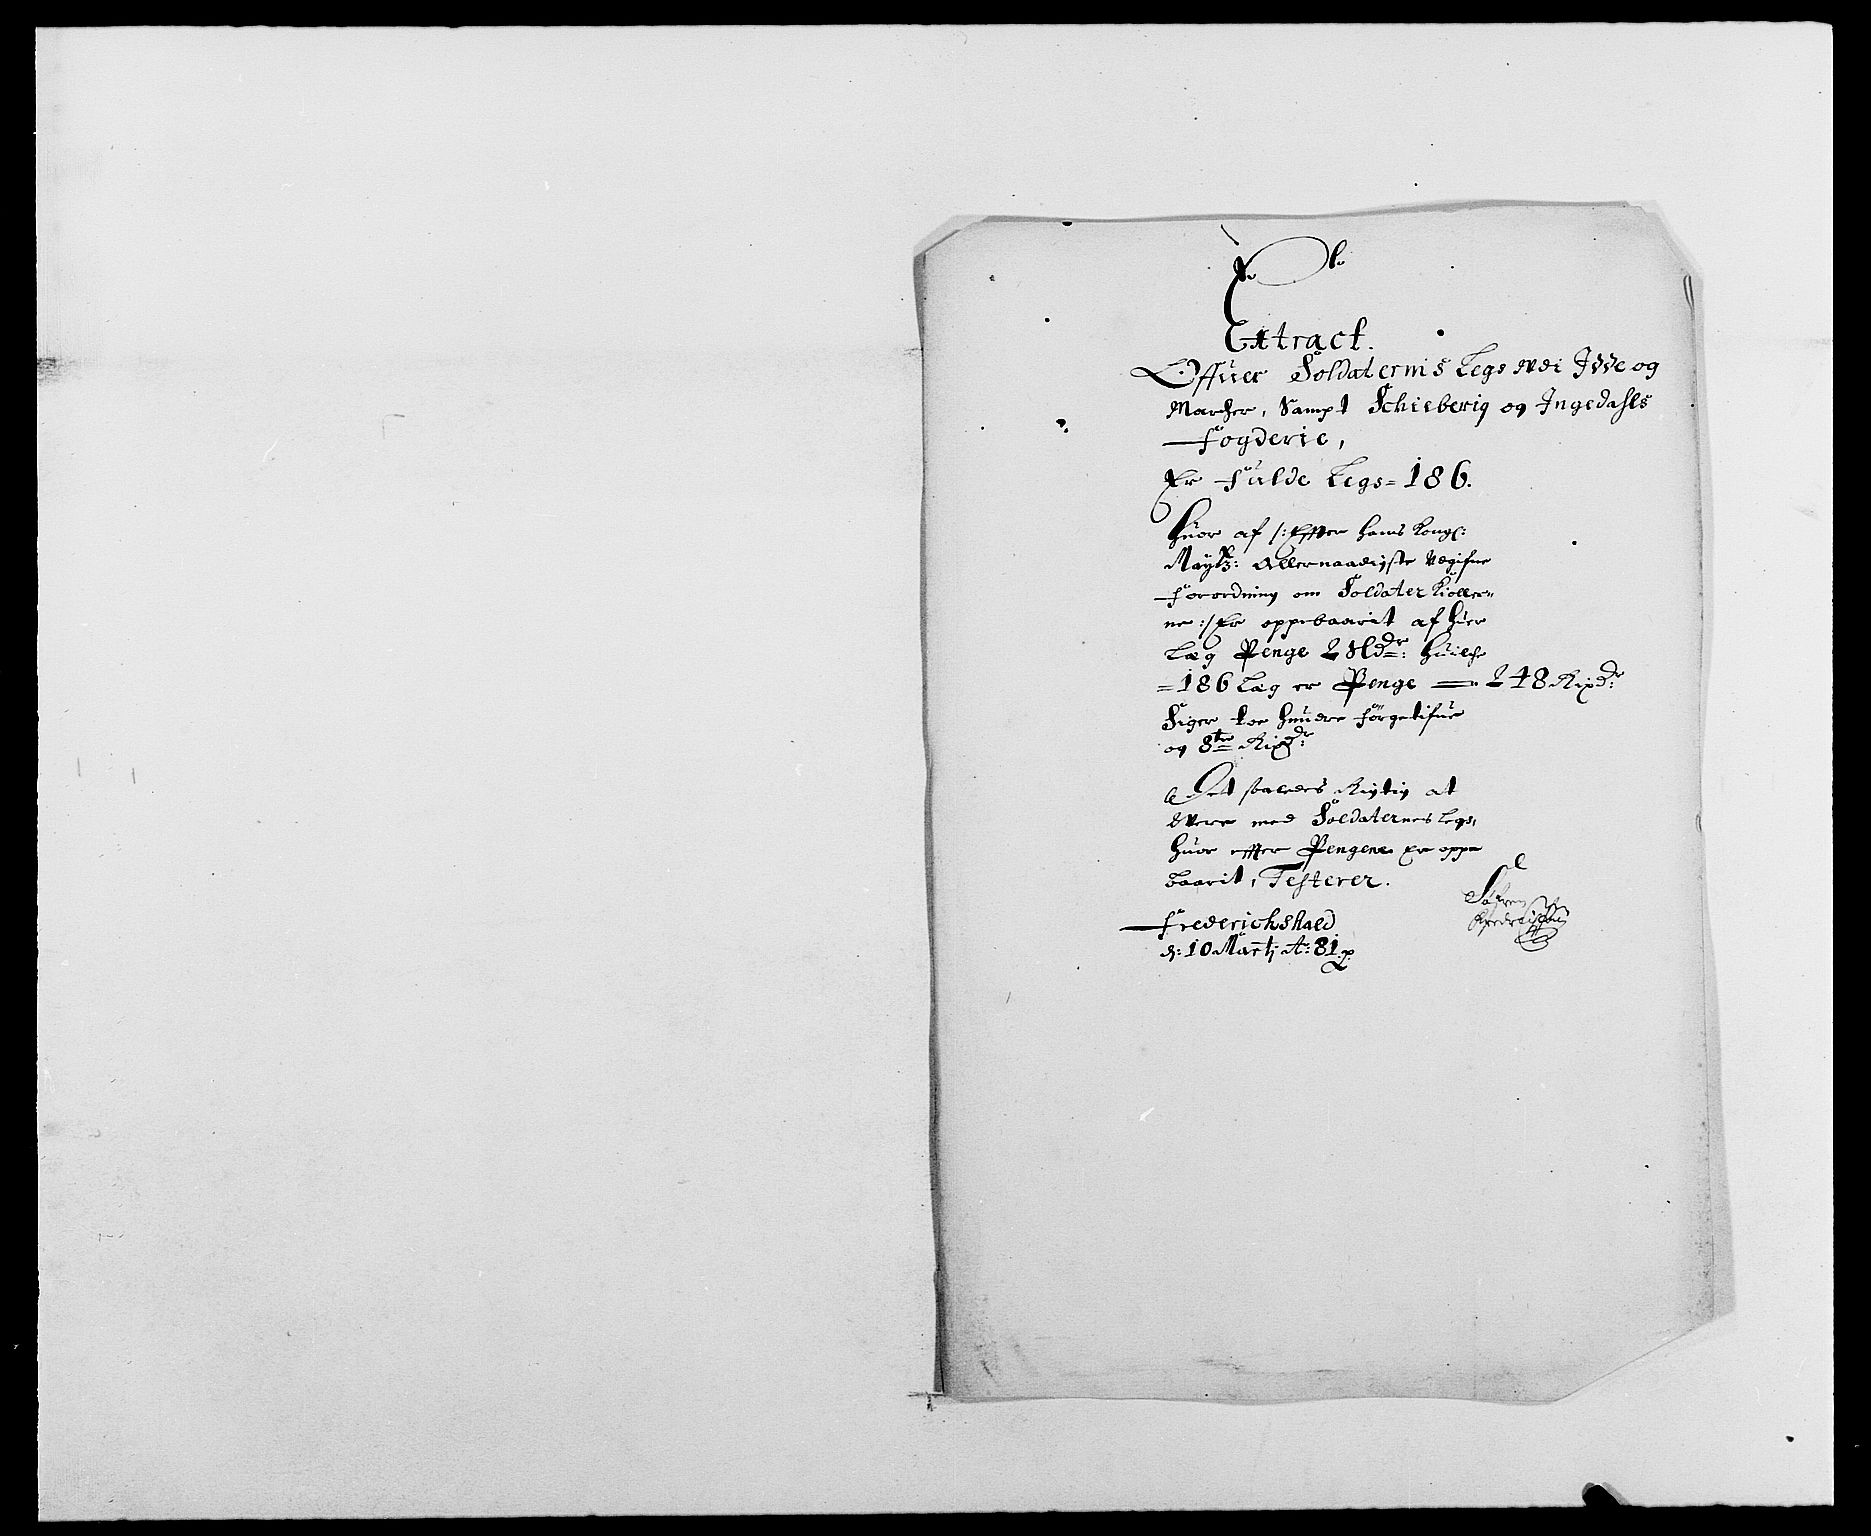 Extract.
Offuer Soldaternis Legs udi Idde og
Marcher, Sampt Schieberig og Ingedahls
Fogderie,
Er Fulde Legs = 186.
Huor af /: Effter hans Kongl:
Maytz: Allernaadigste Udgifne
Forordning om Soldater Kioller=
ne :/ Er oppebaarit af huer
Læg Penge 2 Sldr: huilche
= 186 Læg er Penge — 248 Rixdr:
Siger toe hundre förgetifue
og 8te Rixdr:
At Det saaledes Rigtig at
Were med Soldaternes Legs,
huor effter Pengene Er oppe
baarit, Testerer.
Frederichshald
d: 10 Martj Ao: 81.
Söfren